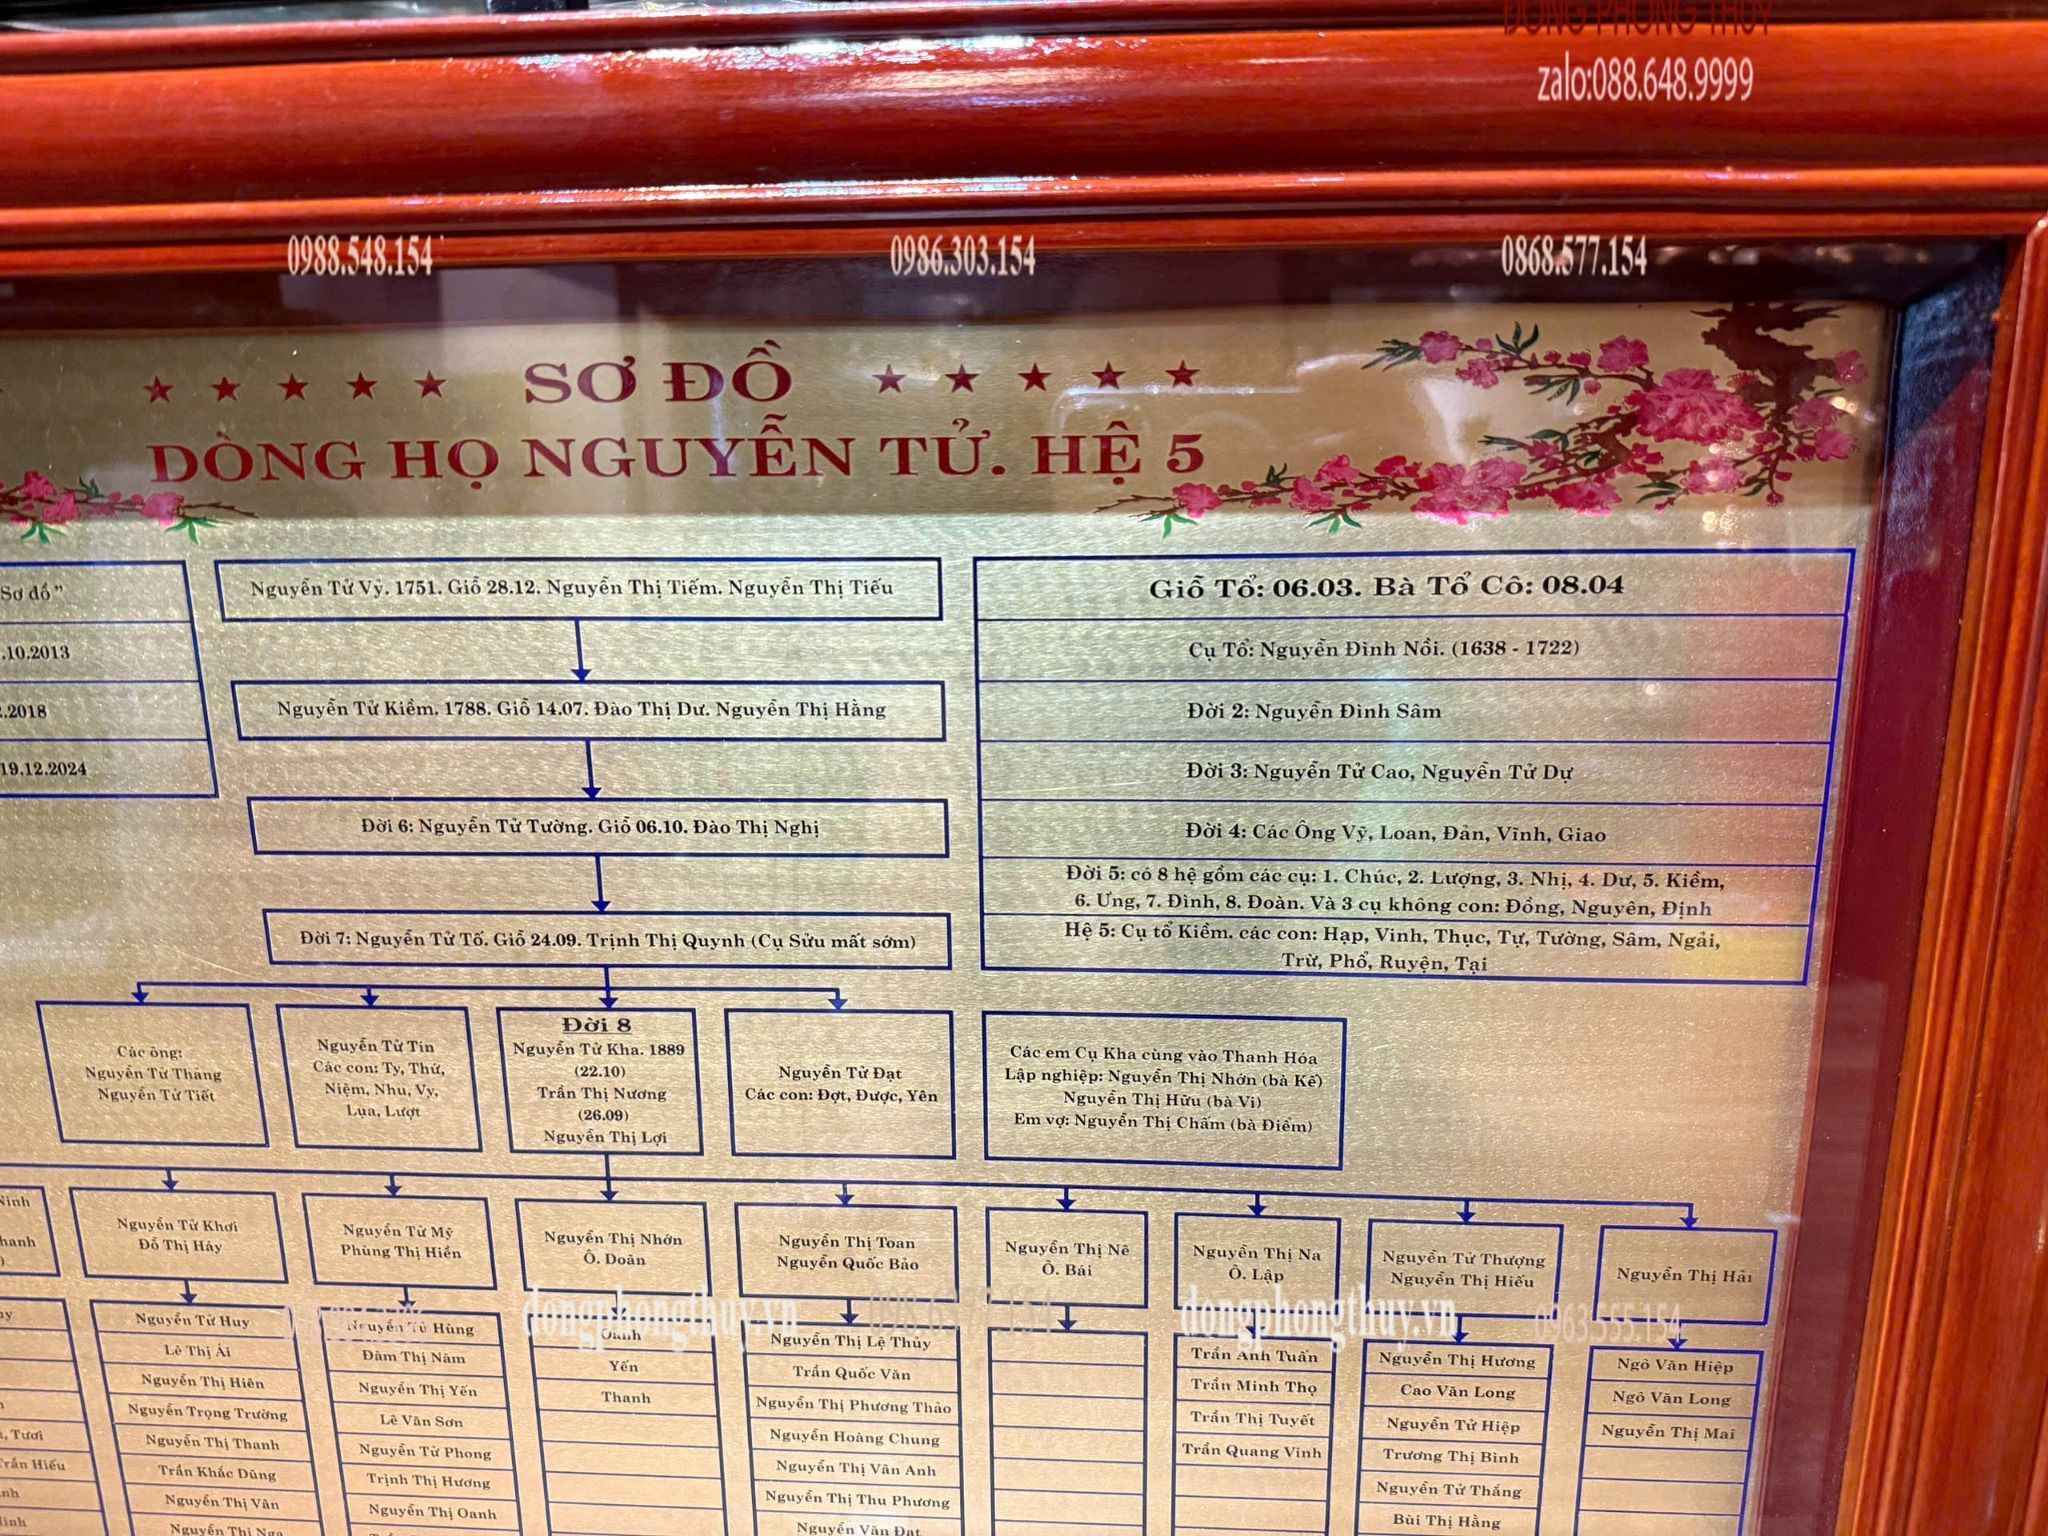 zalo:088.648.9999
0988.548.154
0986.303.154
0868.577.154
SƠ ĐỒ
DÒNG HỌ NGUYỄN TỬ. HỆ 5
Sơ đồ"
.10.2013
.2018
19.12.2024
Nguyễn Tử Vỹ. 1751. Giỗ 28.12. Nguyễn Thị Tiếm. Nguyễn Thị Tiếu
Nguyễn Tử Kiềm. 1788. Giỗ 14.07. Đào Thị Dư. Nguyễn Thị Hằng
Đời 6: Nguyễn Tử Tường. Giỗ 06.10. Đào Thị Nghị
Đời 7: Nguyễn Tử Tố. Giỗ 24.09. Trịnh Thị Quynh (Cụ Sửu mất sớm)
Giỗ Tổ: 06.03. Bà Tổ Cô: 08.04
Cụ Tổ: Nguyễn Đình Nồi. (1638 - 1722)
Đời 2: Nguyễn Đình Sâm
Đời 3: Nguyễn Tử Cao, Nguyễn Tử Dự
Đời 4: Các Ông Vỹ, Loan, Đản, Vĩnh, Giao
Đời 5: có 8 hệ gồm các cụ: 1. Chúc, 2. Lượng, 3. Nhị, 4. Dư, 5. Kiềm,
6. Ưng, 7. Đình, 8. Đoàn. Và 3 cụ không con: Đồng, Nguyên, Định
Hệ 5: Cụ tổ Kiềm. các con: Hạp, Vinh, Thục, Tự, Tường, Sâm, Ngải,
Trừ, Phổ, Ruyện, Tại
Các ông:
Nguyễn Tử Thăng
Nguyễn Tử Tiết
Nguyễn Tử Tín
Các con: Ty, Thứ,
Niệm, Nhu, Vy,
Lụa, Lượt
Đời 8
Nguyễn Tử Kha. 1889
(22.10)
Trần Thị Nương
(26.09)
Nguyễn Thị Lợi
Nguyễn Tử Đạt
Các con: Đợt, Được, Yên
Các em Cụ Kha cùng vào Thanh Hóa
Lập nghiệp: Nguyễn Thị Nhớn (bà Kế)
Nguyễn Thị Hữu (bà Vi)
Em vợ: Nguyễn Thị Chấm (bà Điểm)
Nguyễn Tử Khơi
Đỗ Thị Háy
Nguyễn Tử Mỹ
Phùng Thị Hiền
Nguyễn Thị Nhớn
Ô. Doãn
Nguyễn Thị Toan
Nguyễn Quốc Bảo
Nguyễn Thị Nê
Ô. Bái
Nguyễn Thị Na
Ô. Lập
Nguyễn Tử Thượng
Nguyễn Thị Hiếu
Nguyễn Thị Hải
dongphongthuy.vn
dongphongthuy.vn
0963.555.154
, Tươi
Trần Hiếu
Nguyễn Tử Huy
Lê Thị Ái
Nguyễn Thị Hiên
Nguyễn Trọng Trường
Nguyễn Thị Thanh
Trần Khắc Dũng
Nguyễn Thị Vân
Nguyễn Thị Nga
Nguyễn Tử Hùng
Đàm Thị Năm
Nguyễn Thị Yến
Lê Văn Sơn
Nguyễn Tử Phong
Trịnh Thị Hương
Nguyễn Thị Oanh
Oanh
Yến
Thanh
Nguyễn Thị Lệ Thủy
Trần Quốc Văn
Nguyễn Thị Phương Thảo
Nguyễn Hoàng Chung
Nguyễn Thị Vân Anh
Nguyễn Thị Thu Phương
Nguyễn Văn Đạt
Trần Anh Tuấn
Trần Minh Thọ
Trần Thị Tuyết
Trần Quang Vinh
Nguyễn Thị Hương
Cao Văn Long
Nguyễn Tử Hiệp
Trương Thị Bình
Nguyễn Tử Thắng
Bùi Thị Hằng
Ngô Văn Hiệp
Ngô Văn Long
Nguyễn Thị Mai